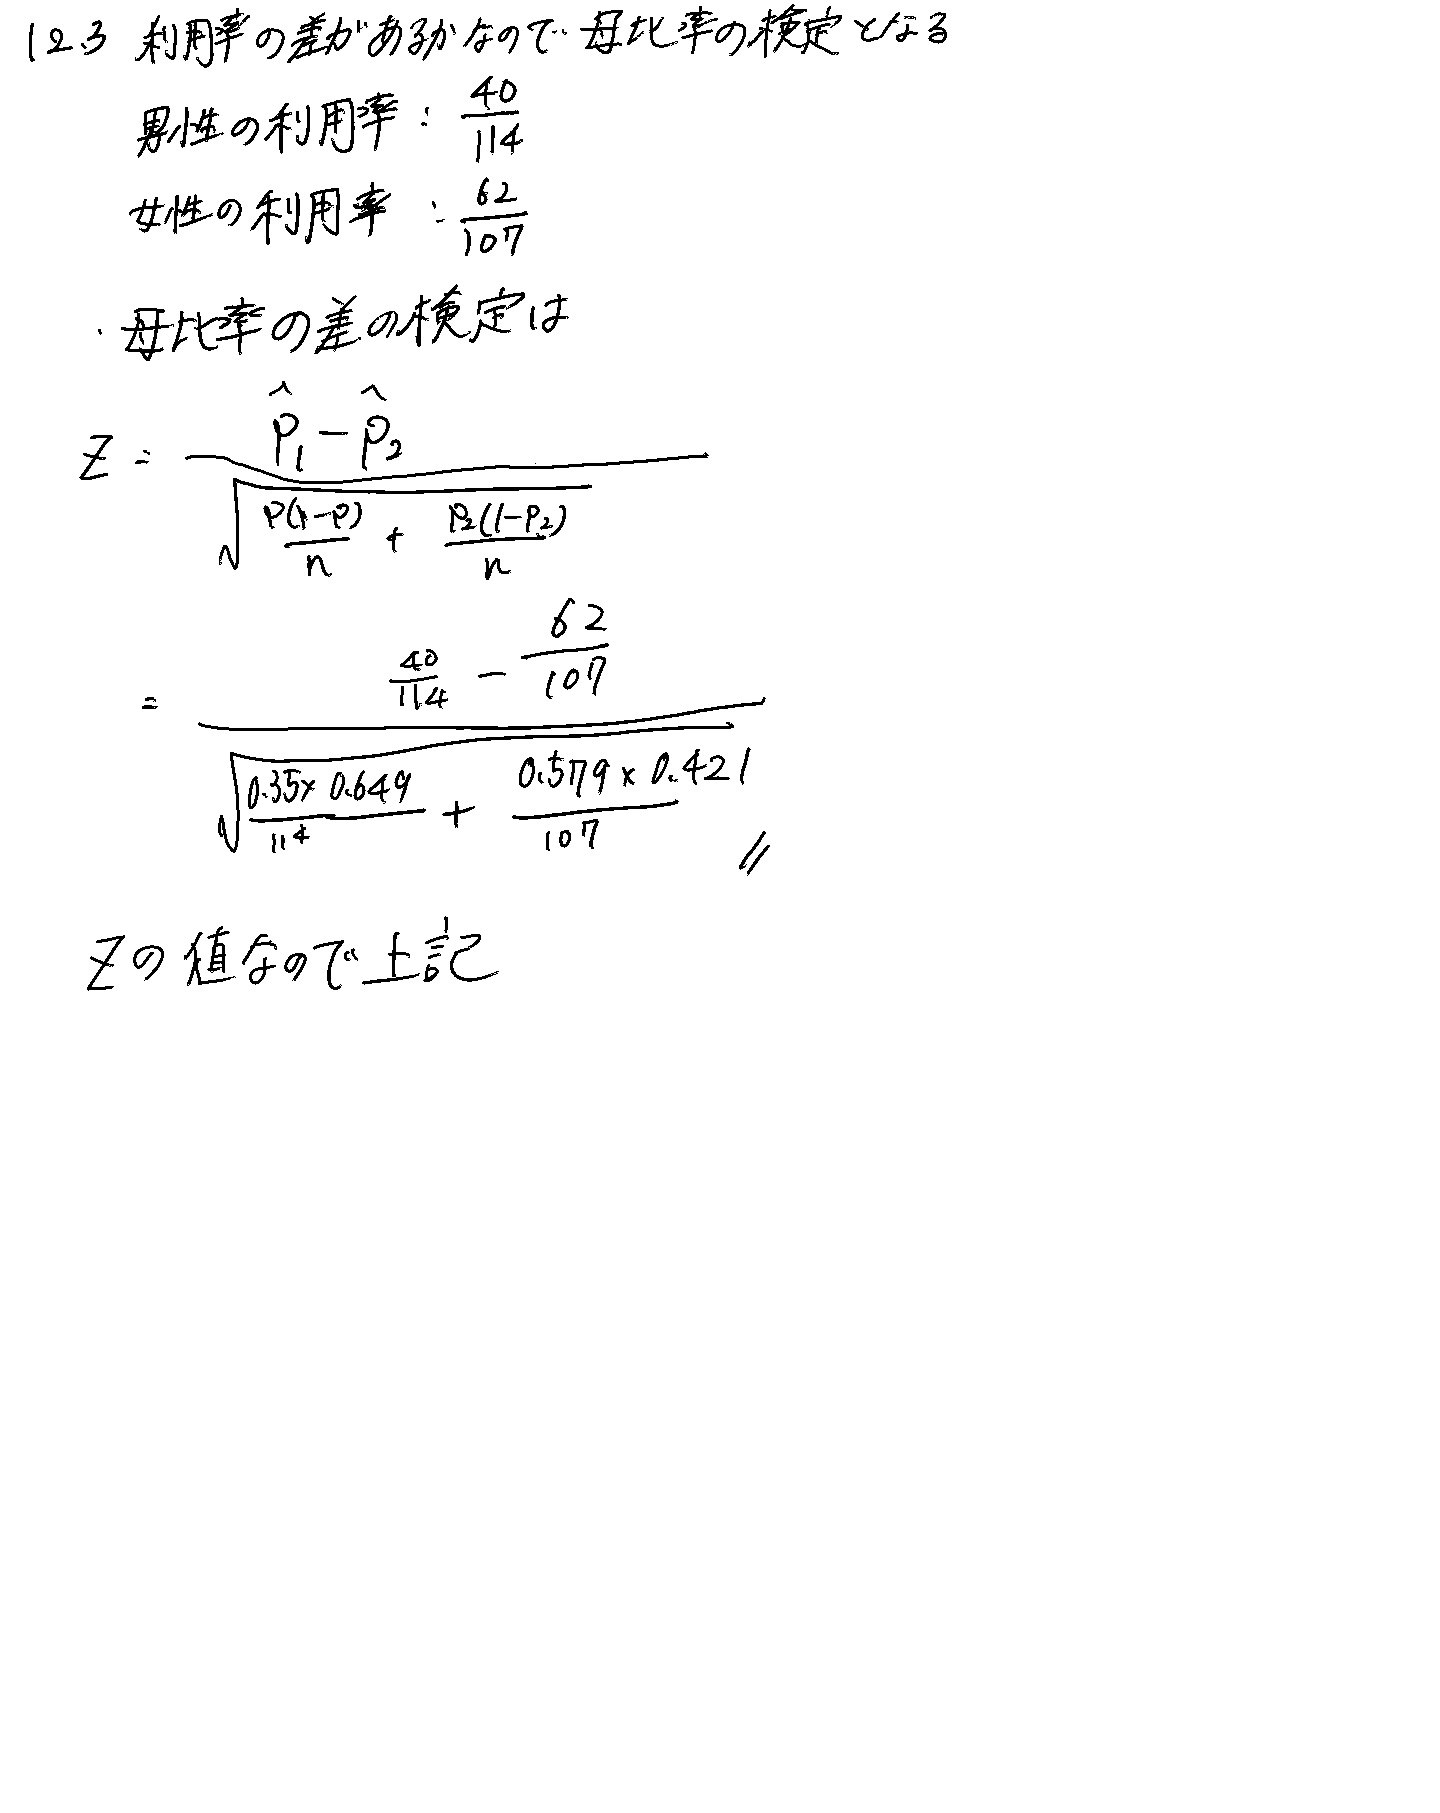 12.3 利用率の差があるかなので母比率の検定となる
男性の利用率: 40/114
女性の利用率: 62/107
・母比率の差の検定は
Z = (p̂₁ - p̂₂) / √(p(1-p)/n + p₂(1-p₂)/n)
= (40/114 - 62/107) / √(0.35×0.649/114 + 0.579×0.421/107) //
Zの値なので上記